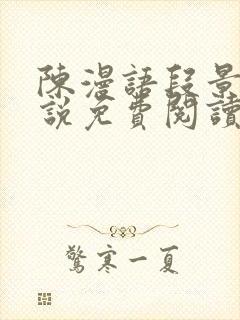 陳漫語段景
說免費閱讀
驚寒一夏